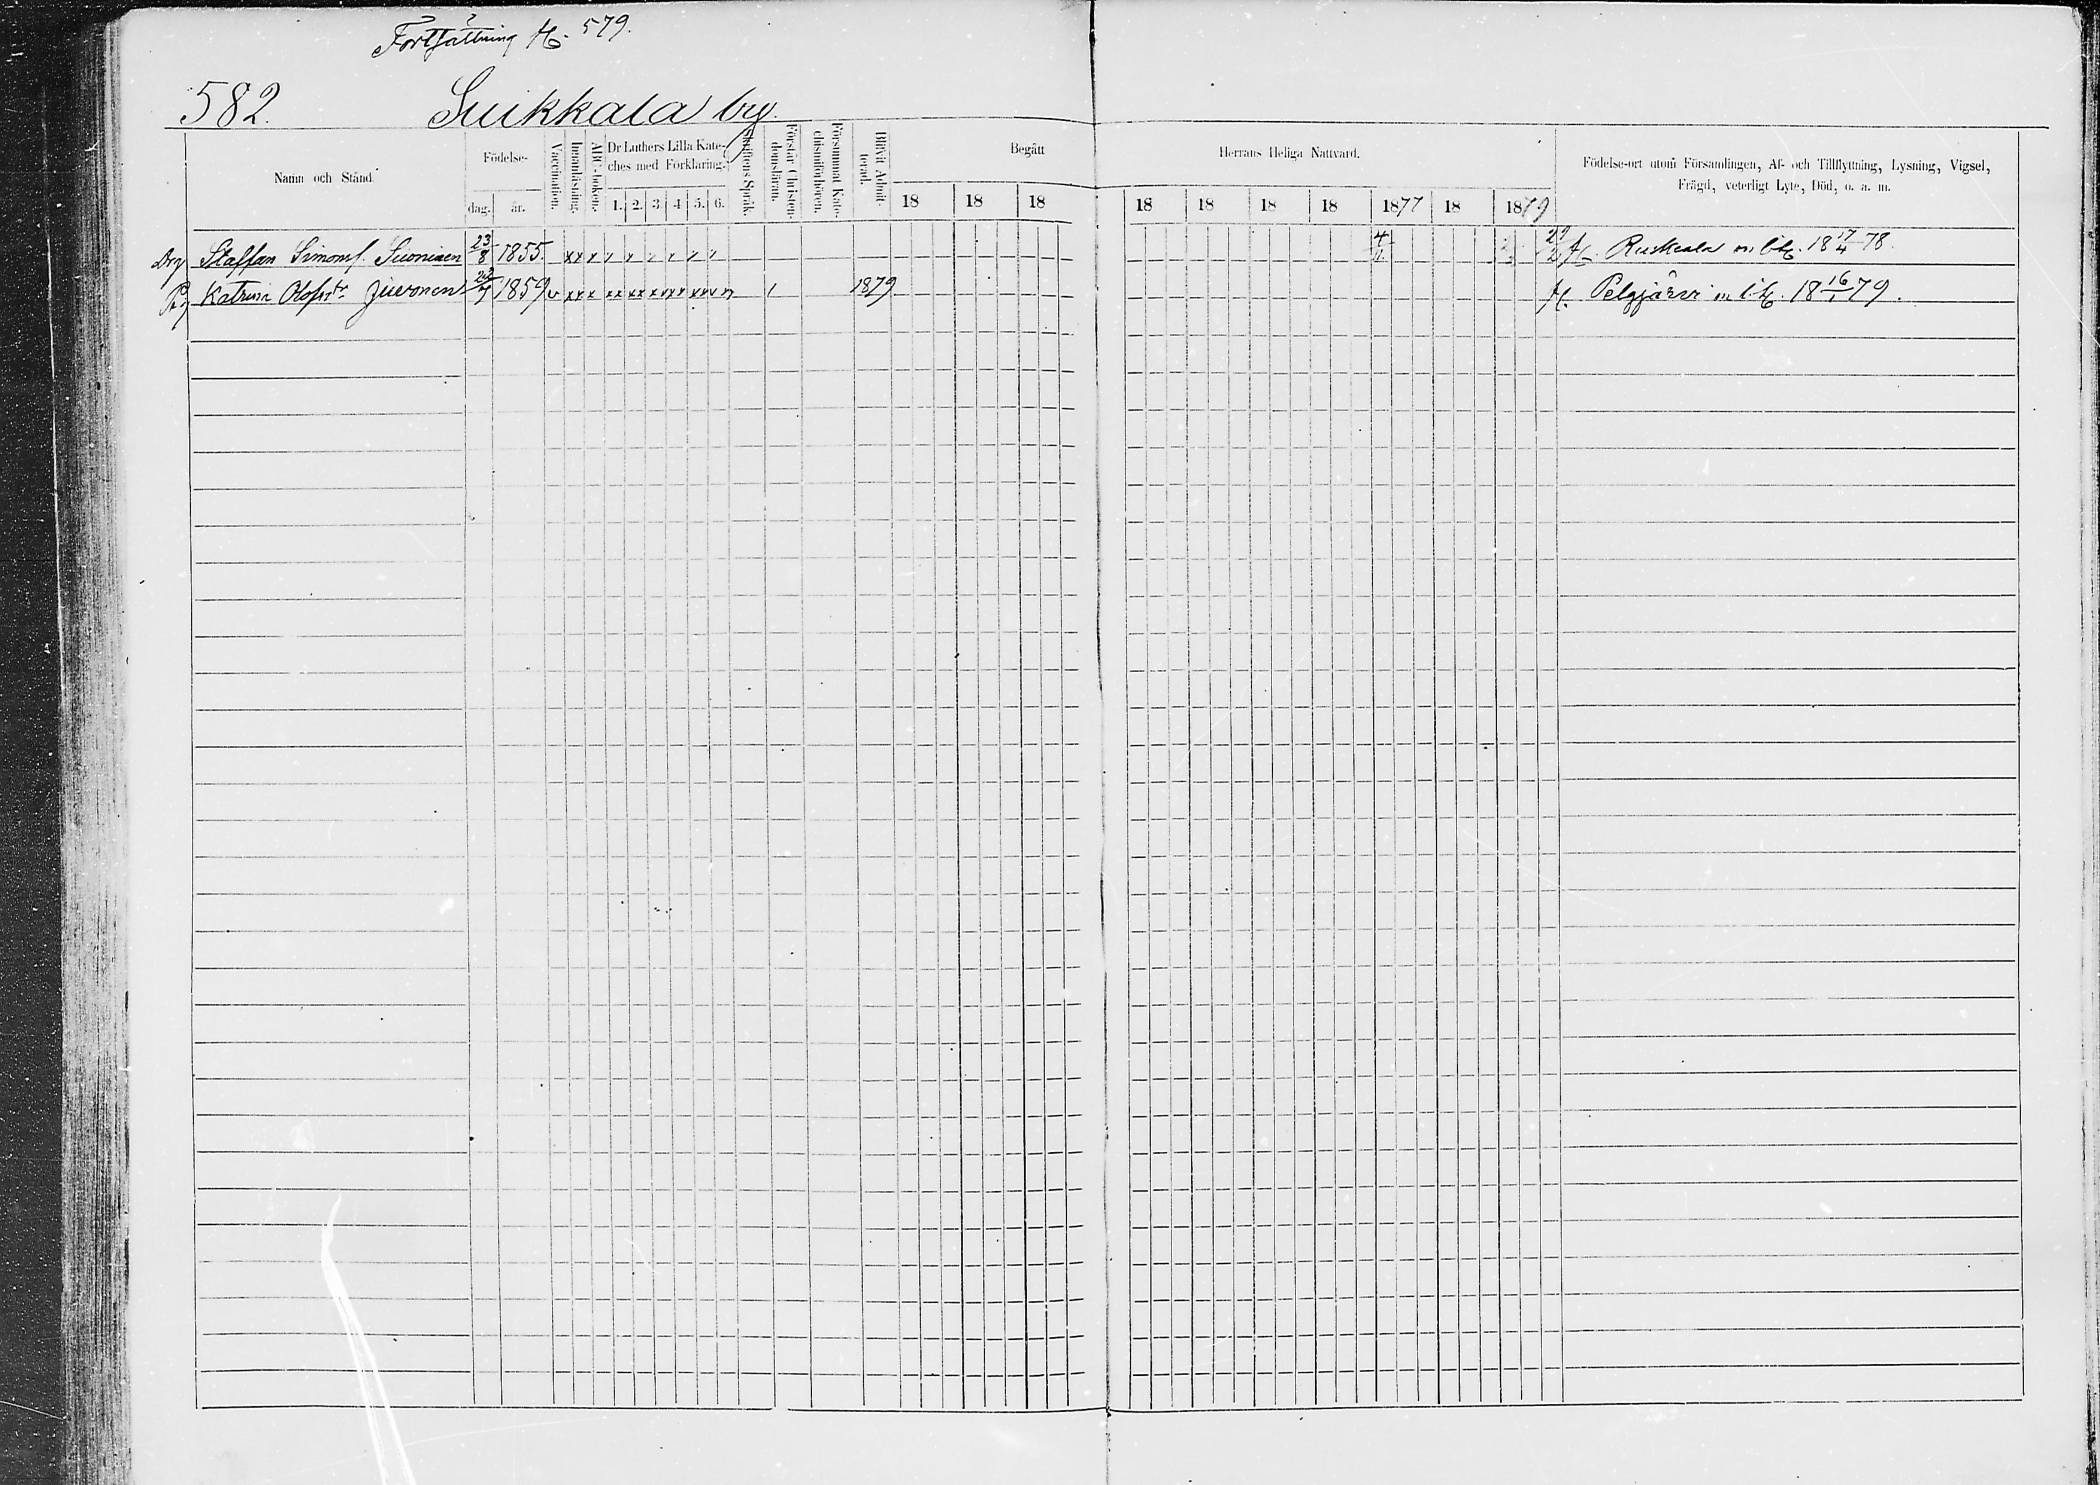 Fortsättning fr. 579.
582. Suikkala by.
Namn och Stånd.
Födelse-
dag. år.
Vaccination.
Innanläsning.
ABC-boken.
Dr Luthers Lilla Kate-
ches med Förklaring.
1. 2. 3 4 5. 6.
Skriftens Språk.
Förstår Christen-
domsläran.
Försummat Kate-
chismiförhören.
Blifvit Admit-
terad.
Begått
Herrans Heliga Nattvard.
18 18 18 18 18 18 18 1877 18 1879
Födelse-ort utom Församlingen, Af- och Tillflyttning, Lysning, Vigsel,
Frägd, veterligt Lyte, Död, o. a. m.
Drg Staffan Simons. Suoninen 23/8 1855. fr. Ruskeala m. b. 18 17/4 78.
Pig Katrina Olofsdr. Juvonen 1859 1879 fr. Pelgjärvi m. b. 18 16/1 79.